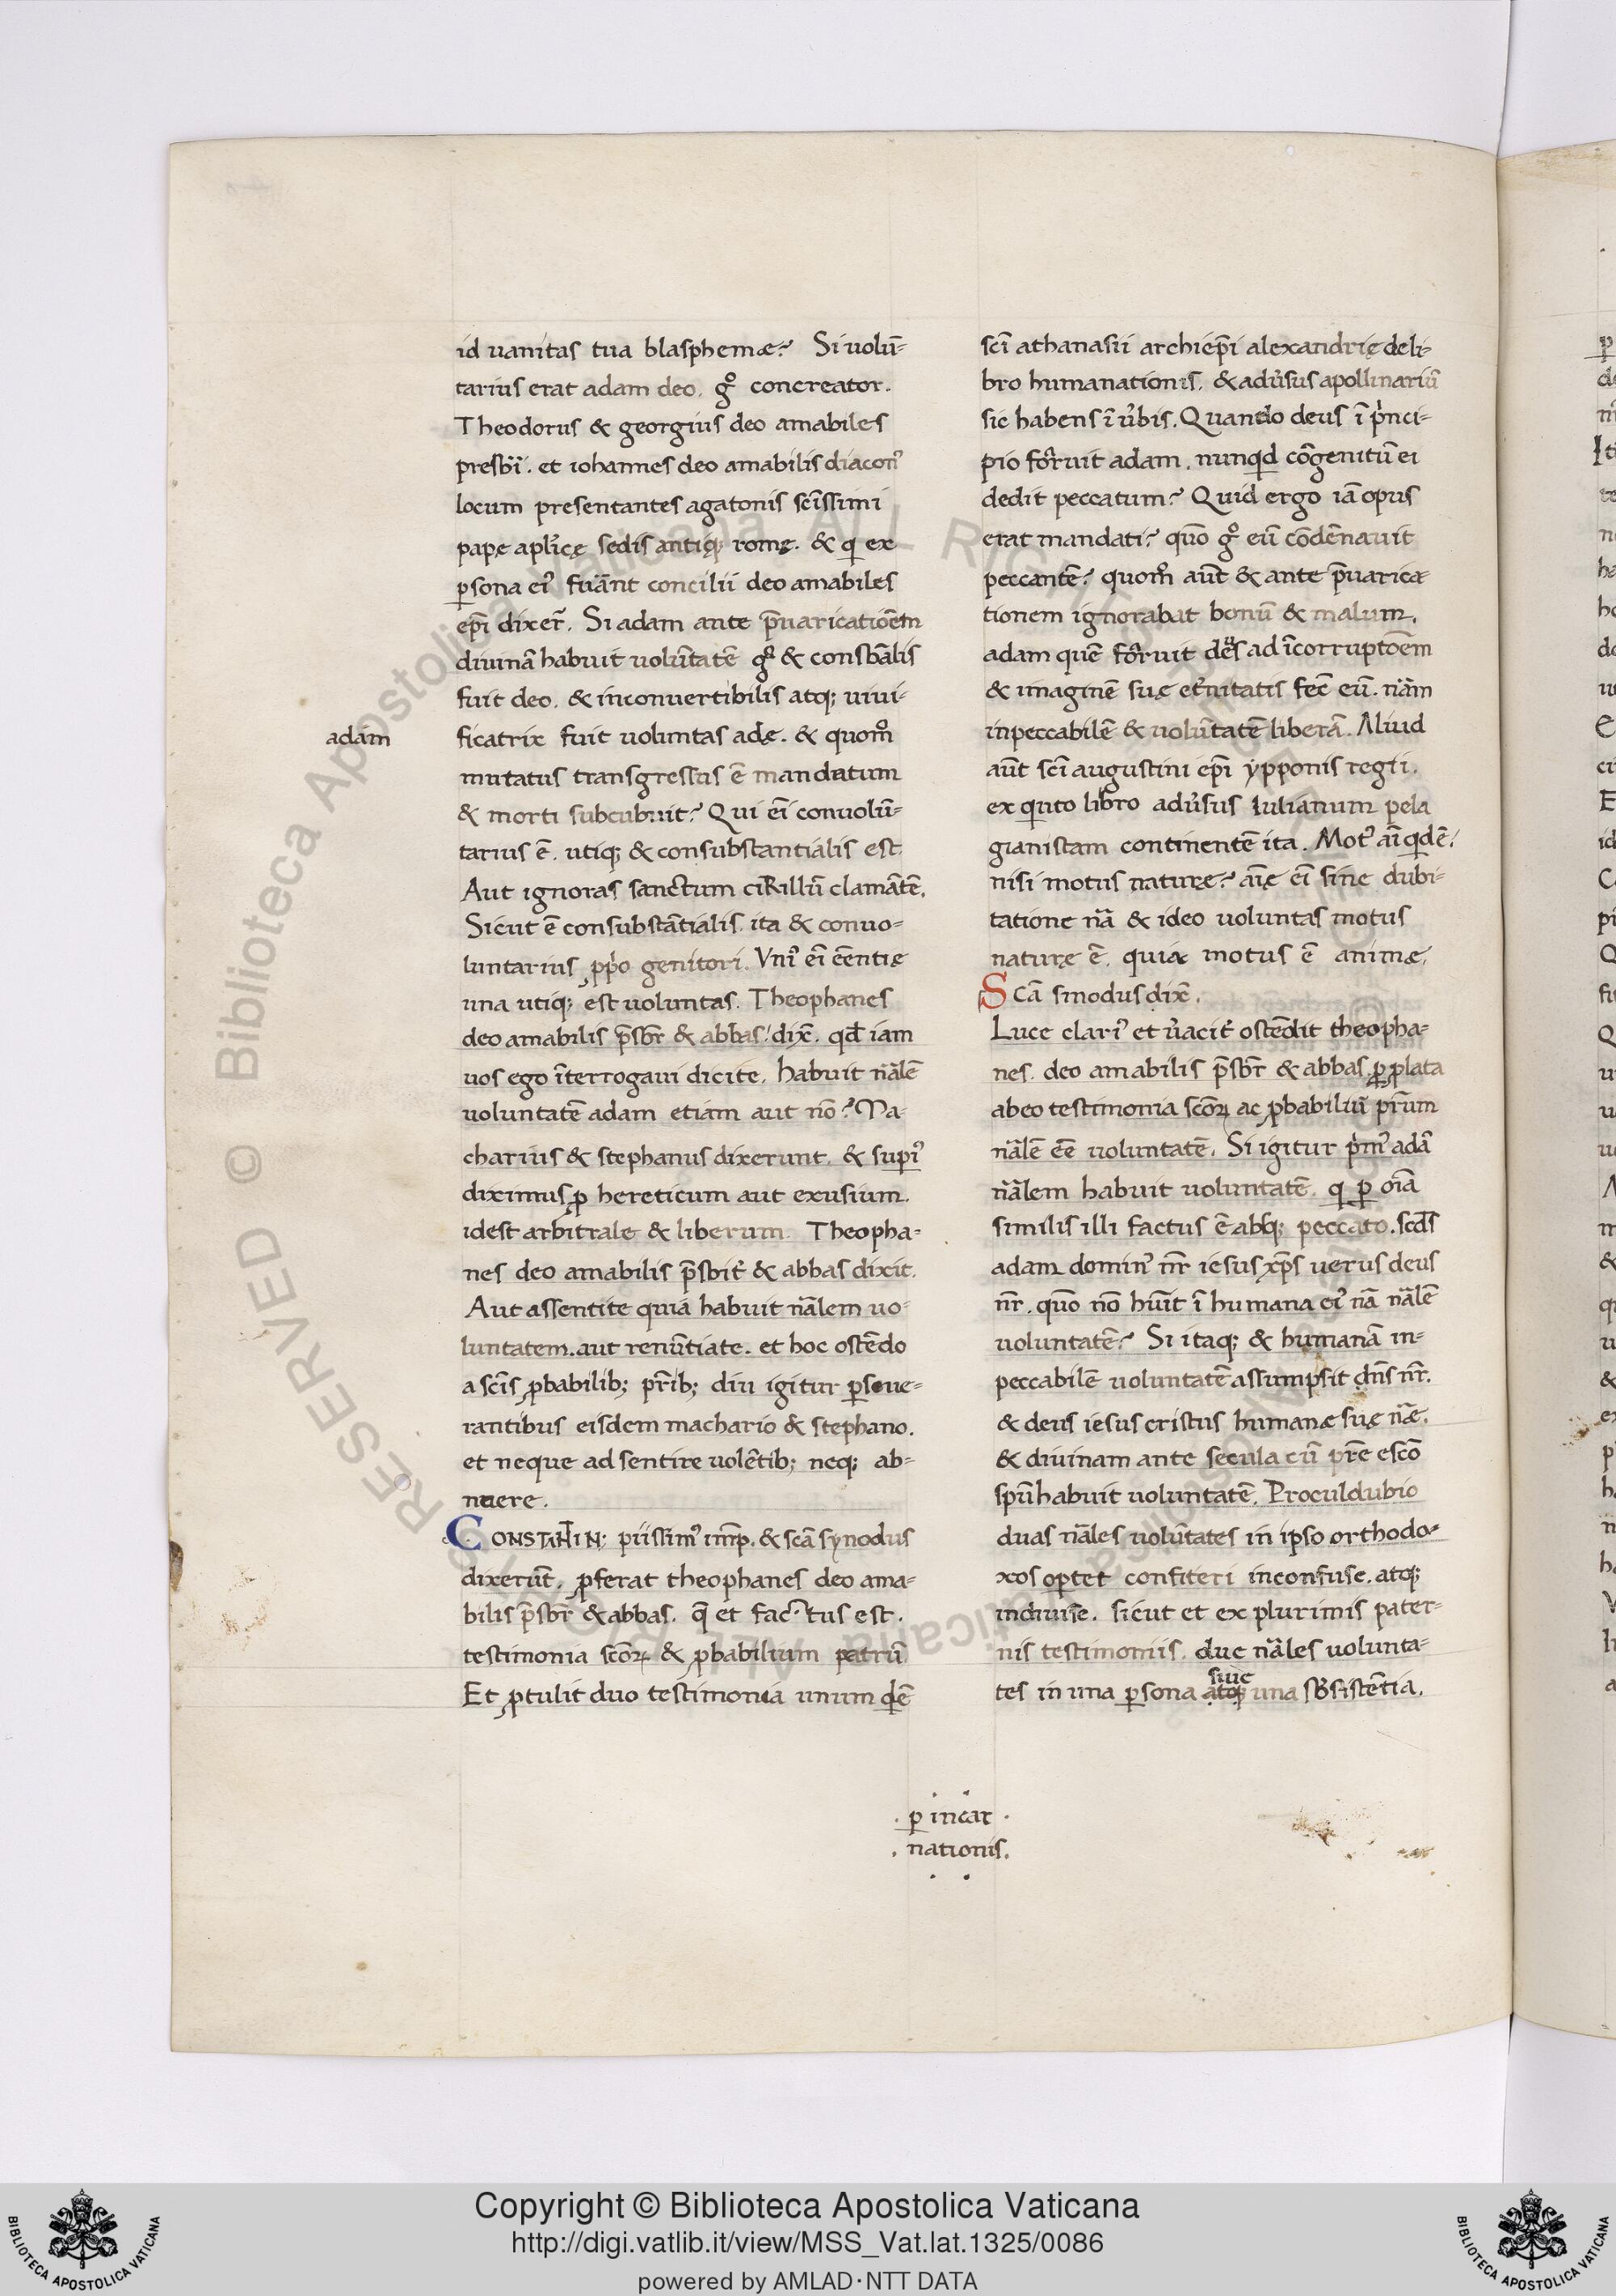 id uanitas tua blasphemæ? Si uolū-
tarius erat adam deo. g̊ concreator.
Theodorus & georgius deo amabiles
presb̄i. et iohannes deo amabilis diacon᾽
locum presentantes agatonis sc̄issimi
papę apl̓icę sedis antiq̨; romę. & qi ex
ꝑsona ei᾽ fuānt concilii deo amabiles
ep̄i dixer̄. Si adam ante p̄uaricatiōem
diuinā habuit uolūtatē gͦ & consb̄alis
fuit deo. & inconuertibilis atq; uiui-
ficatrix fuit uoluntas adę. & quom̊
mutatus transgressus ē mandatum
& morti subcubuit? Qui ei̅ conuolū-
tarius ē. utiq; & consubstantialis est.
Aut ignoras sanctum ciRillū clamātē.
Sicut ē consubstātialis. ita & conuo-
luntarius ꝓp̓o genitori. Vni᾽ ei̅ ēentię
una utiq; est uoluntas. Theophanes
deo amabilis p̄sbr̄ & abbas! dix̄. qd̄ iam
uos ego īterrogaui dicite. habuit nālē
uoluntatē adam etiam aut nō? Ma-
charius & stephanus dixerunt. & supi᾽
diximus ꝓ hereticum aut exusium.
idest arbitrale & liberum. Theopha-
nes deo amabilis p̄sbit̓ & abbas dixit.
Aut assentite quia habuit nālem uo-
luntatem. aut renūtiate. et hoc ostēdo
a sc̄is ꝓbabilib; pr̄ib; diu igitur ꝑseue-
rantibus eisdem machario & stephano.
et neque adsentire uolētib; neq; ab-
nuere.
CONSTANTIN; piissim᾽ imp̄. & scā synodus
dixerūt. ꝓferat theophanes deo ama-
bilis p̄sbr̄ & abbas. q̄ et factus est.
testimonia scōꝝ & ꝓbabilium patrū
Et ꝓtulit duo testimonia unum qdē
adam
sc̄i athanasii archiep̄i alexandrię de li-
bro humanationis. & adu̓sus apollinariū
sic habens ī u̓bis. Quando deus ī p̓nci-
pio for̄uit adam. nunqd cōgenitū ei
dedit peccatum? Quid ergo iā opus
erat mandati? quō g̊ eū cōdēnauit
peccantē? quom̊ aūt & ante p̄uarica
tionem ignorabat bonū & malum.
adam quē for̄uit deus ad īcorruptōem
& imaginē suę et̓nitatis fec̄ eū. nām
inpeccabilē & uolūtatē liberā. Aliud
aūt sc̄i augustini ep̄i ypponis regii.
ex qiuto libro adu̓sus Iulianum pela
gianistam continentē ita. Mot᾽ ai̅ qid ē!
nisi motus naturę? ai̅ę ei̅ sine dubi-
tatione nā & ideo uoluntas motus
naturę ē. quia motus ē animæ.
Scā sinodus dix̄.
Luce clari᾽ et u̓acit̓ ostēdit theopha-
nes. deo amabilis p̄sbr̄ & abbas ꝑ ꝓlata
ab eo testimonia scōꝝ ac ꝓbabiliū pr̄um
nālē ēe uoluntatē. Si igitur p̓m᾽ adā
nālem habuit uoluntatē. qi ꝑ oīa
similis illi factus ē absq; peccato. scd̄s
adam domin᾽ nr̄ iesus xp̄s uerus deus
nr̄. quō nō hūit ī humana ei᾽ nā nālē
uoluntatē? Si itaq; & humanā in-
peccabilē uoluntatē assumpsit dn̄s nr̄.
& deus iesus cristus humanæ suę nāę.
& diuinam ante secula cū pr̄e et scō
spū habuit uoluntatē. Proculdubio
duas nāles uolūtates in ipso orthodo-
xos oꝑtet confiteri inconfuse. atq;
indiuise. sicut et ex plurimis pater-
nis testimoniis. duę nāles uolunta-
siue
tes in una ꝑsona atq; una sb̄sistētia.
ꝑ incar
nationis.
Copyright © Biblioteca Apostolica Vaticana
http://digi.vatlib.it/view/MSS_Vat.lat.1325/0086
powered by AMLAD·NTT DATA
BIBLIOTECA APOSTOLICA VATICANA
BIBLIOTECA APOSTOLICA VATICANA